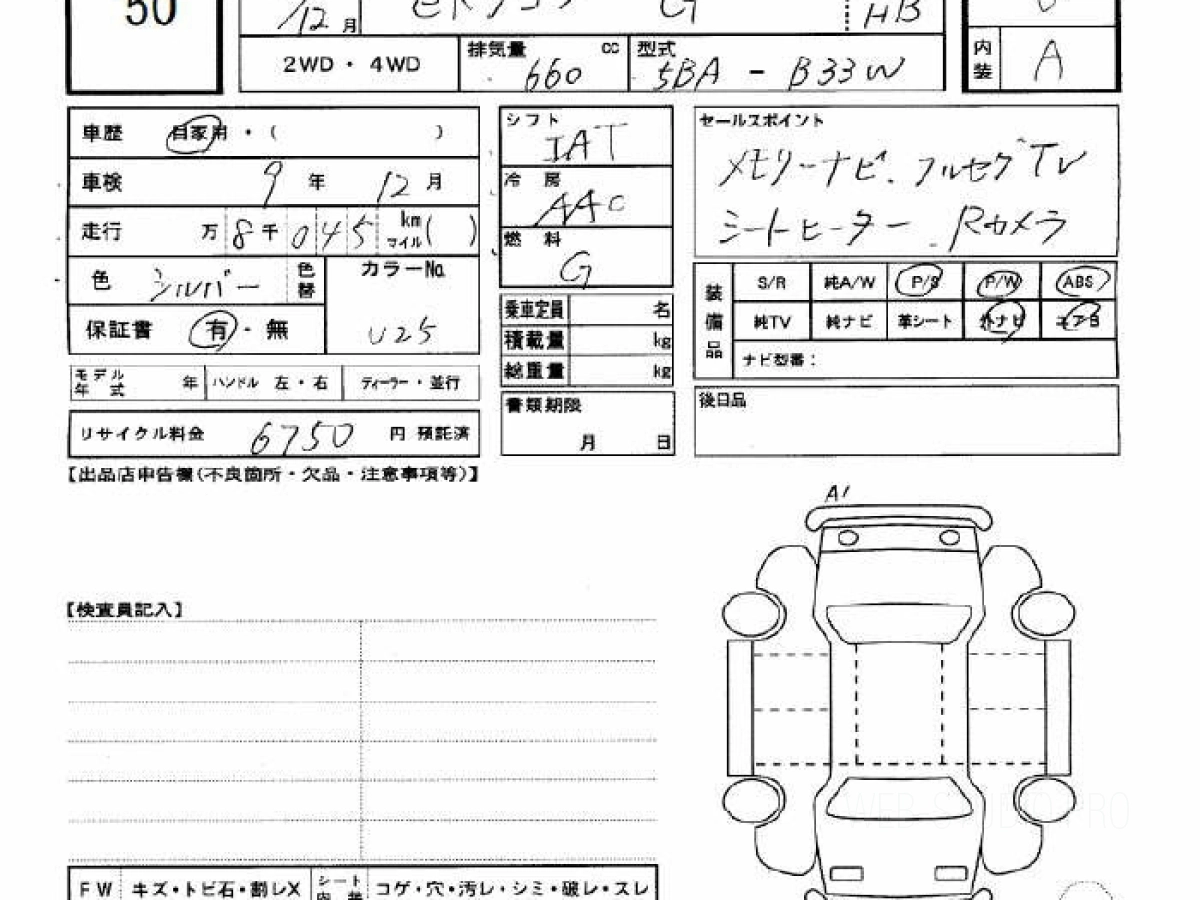 50
/12 月
G
HB
2WD・4WD
排気量 cc 660
型式 5BA - B33W
内装 A
車歴 自家用・( )
車検 9 年 12 月
走行 万 8 千 0 4 5 km マイル ( )
色 シルバー 色替
カラーNo. U25
保証書 有・無
モデル年式 年 ハンドル 左・右 ディーラー・並行
リサイクル料金 6750 円 預託済
シフト IAT
冷房 AAC
燃料 G
乗車定員 名
積載量 kg
総重量 kg
書類期限
月 日
セールスポイント
メモリーナビ.フルセグTV
シートヒーター.Rカメラ
装備品
S/R 純A/W P/S P/W ABS
純TV 純ナビ 革シート 外ナビ エアB
ナビ型番:
後日品
【出品店申告欄(不良箇所・欠品・注意事項等)】
A1
【検査員記入】
WEB STUDIO PRO
FW キズ・トビ石・割レX シート内装 コゲ・穴・汚レ・シミ・破レ・スレ